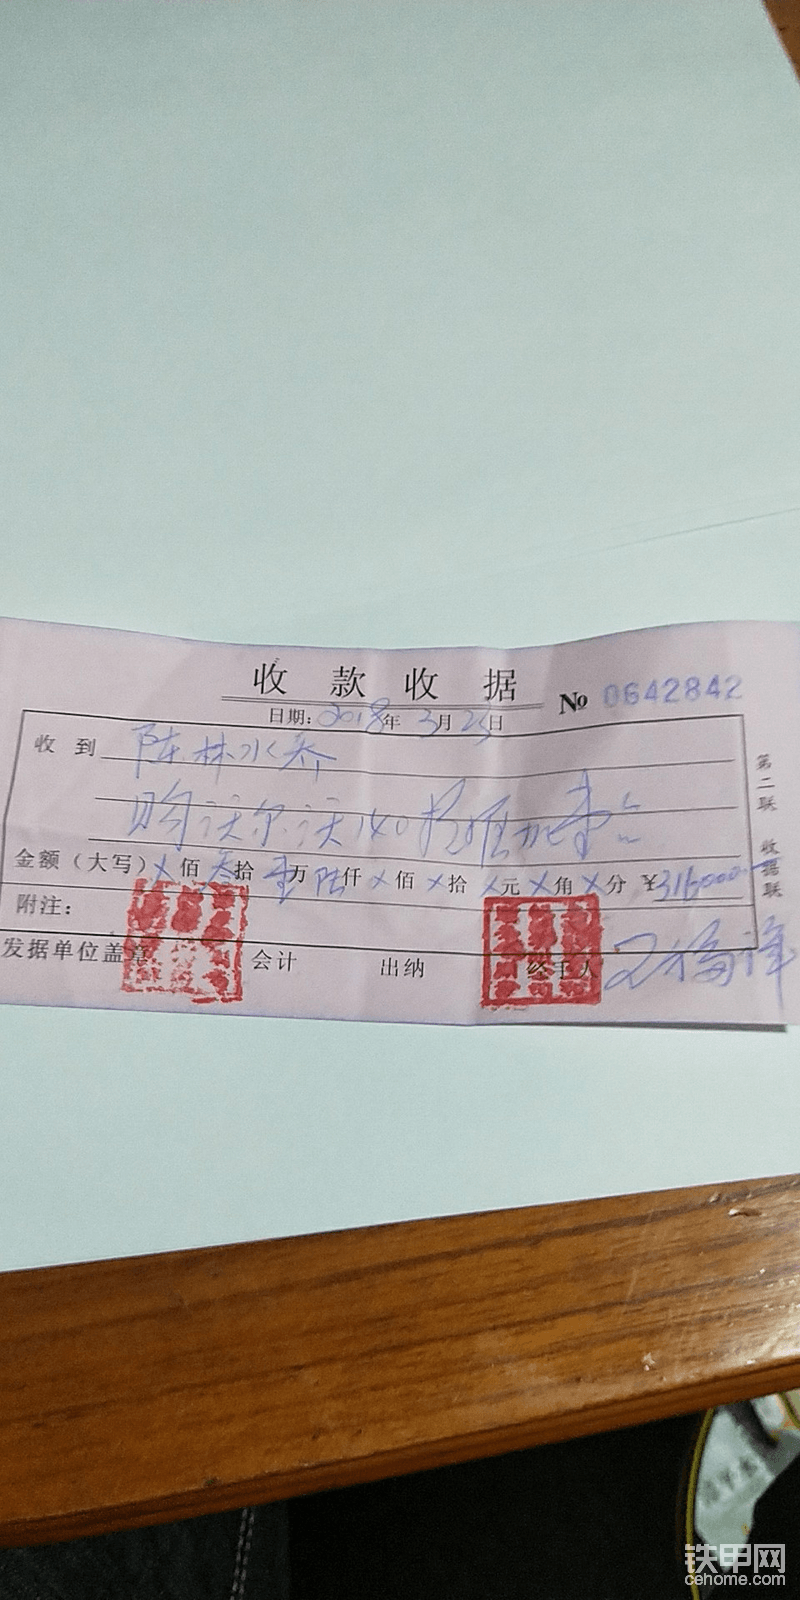 收款收据
日期：2018年3月25日 № 0642842
收到 陈林水乔
购沃尔沃140挖掘机壹台
金额（大写）×佰叁拾壹万陆仟×佰×拾×元×角×分 ¥316000
附注：
发据单位盖章 会计 出纳 经手人
第二联 收据联
铁甲网
cehome.com